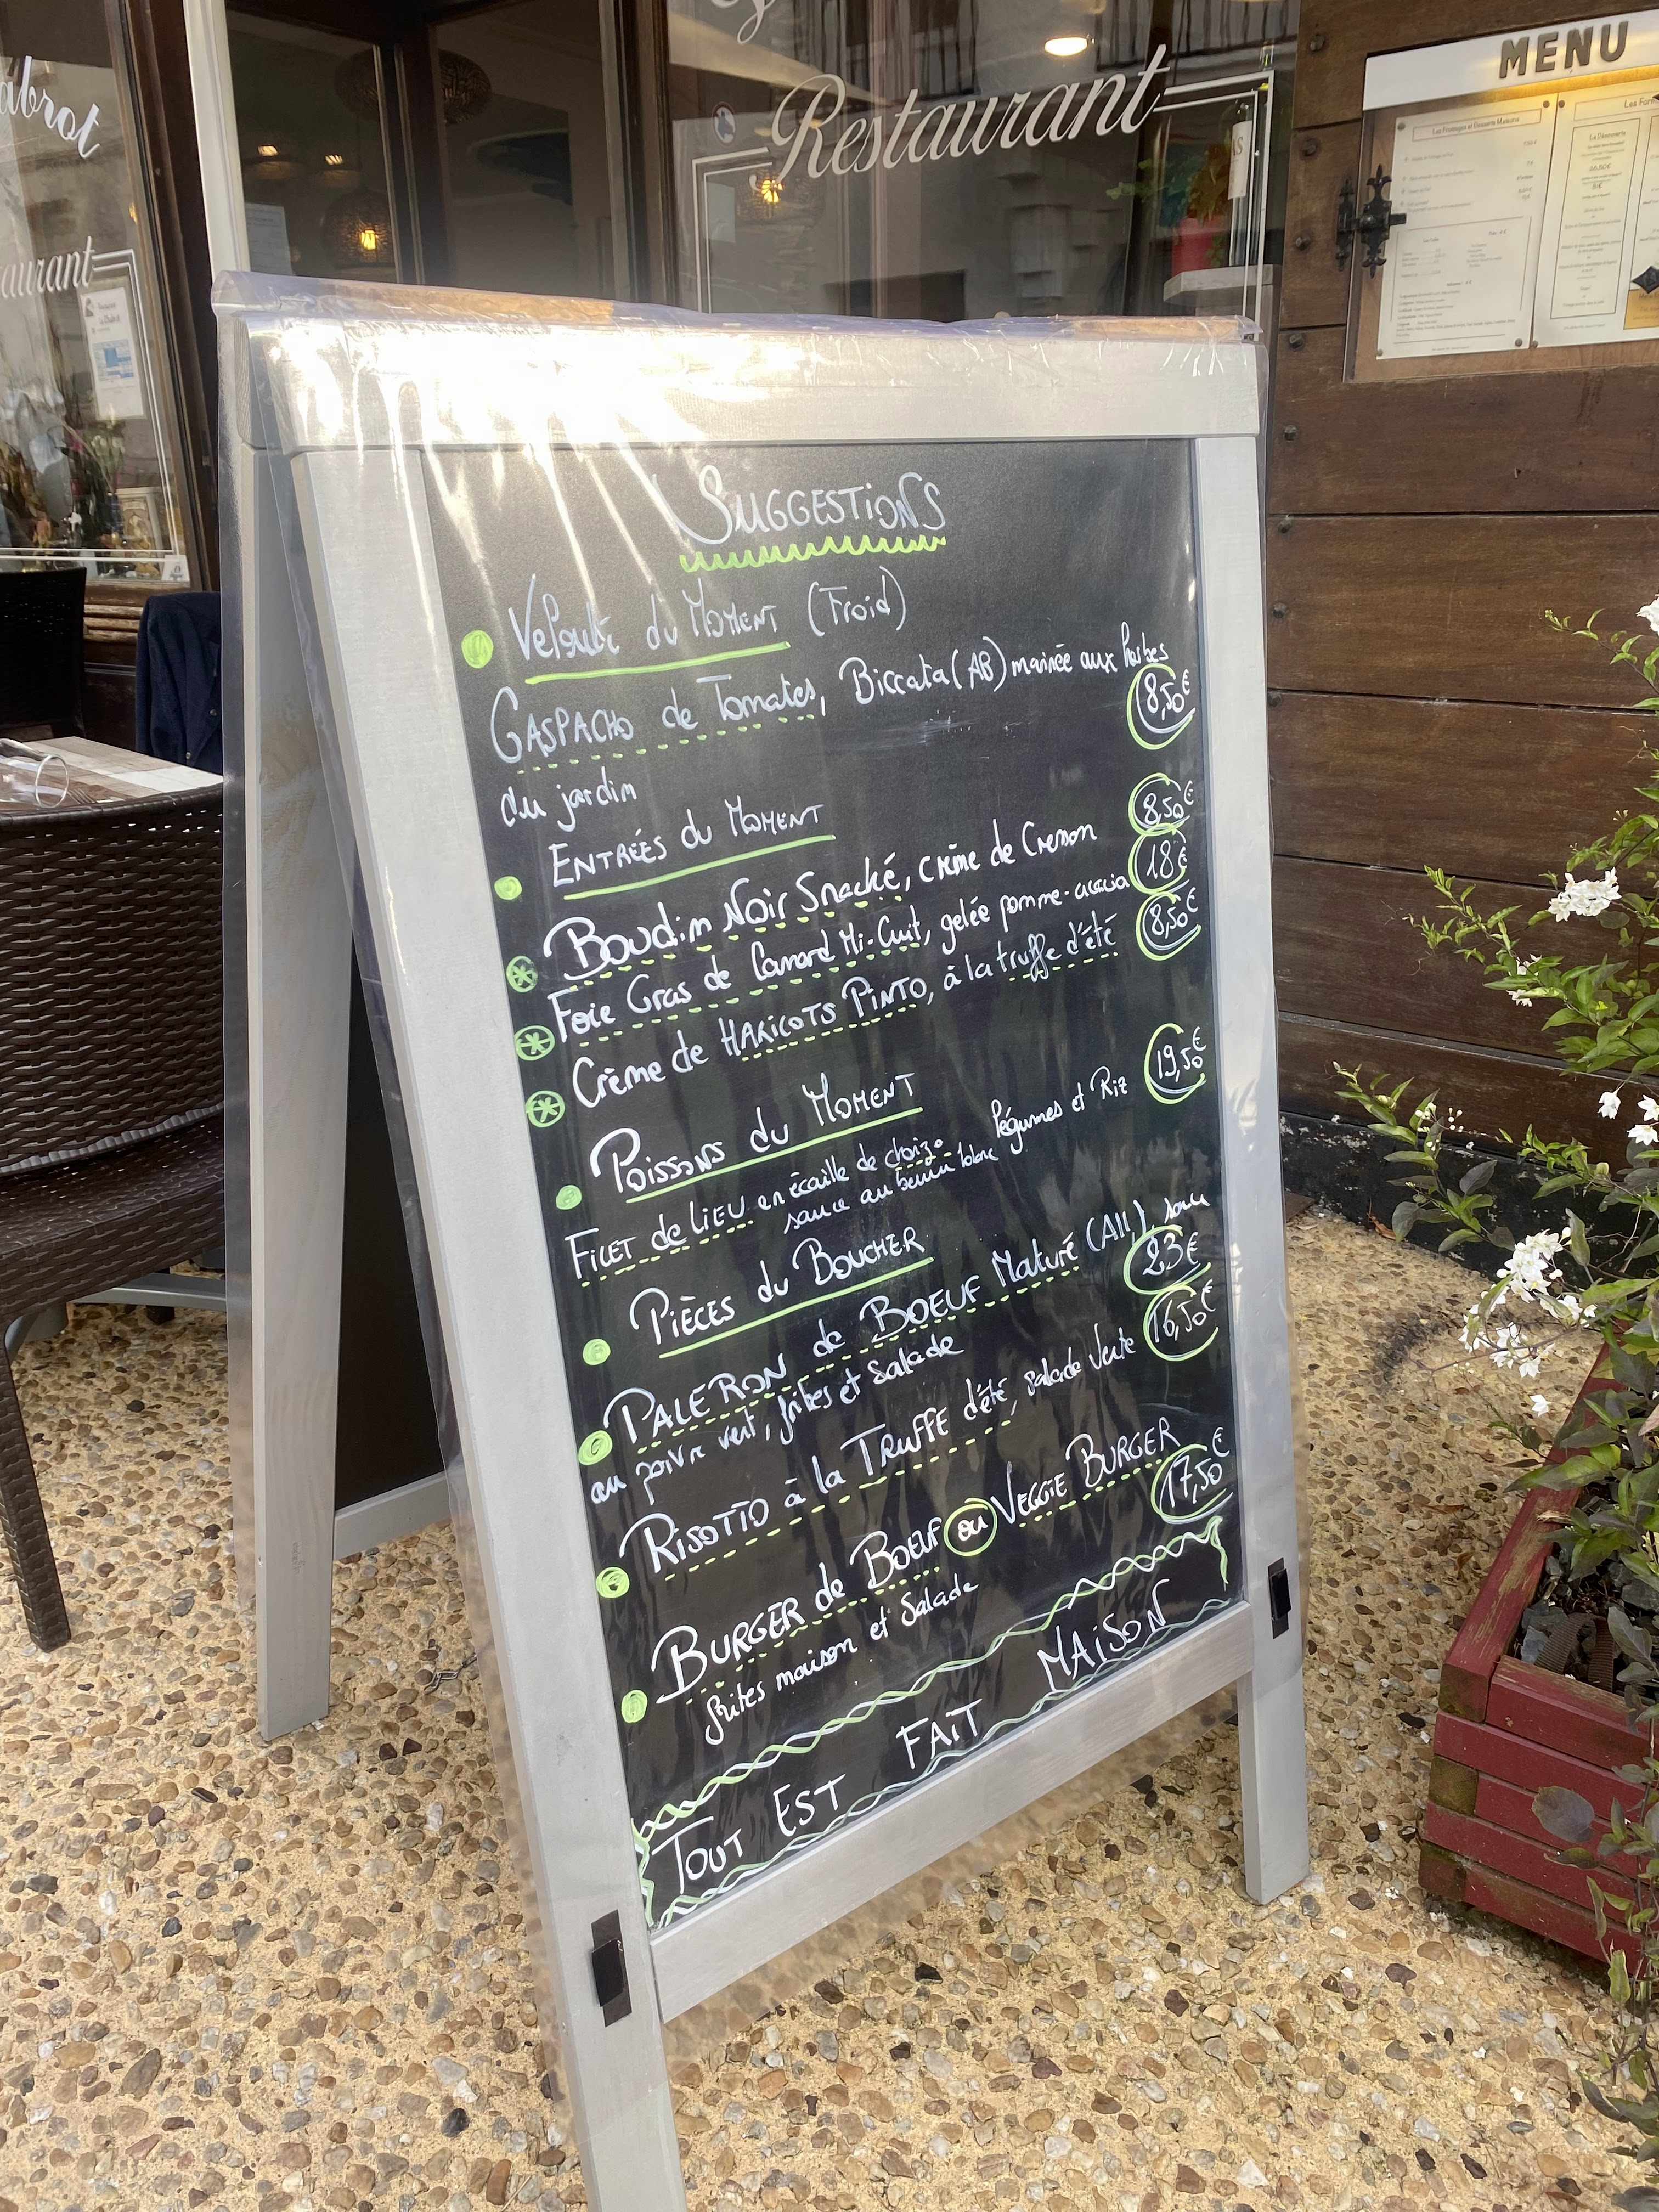 abrot
Restaurant
aurant
MENU
Les Fromages et Desserts Maisons
La Découverte
SUGGESTIONS
Velouté du MOMENT (Froid)
GASPACHO de Tomates, Biccata (AB) marinée aux herbes
8,50€
du jardin
ENTRÉES du MOMENT
Boudin Noir Snacké, crème de Cresson 8,50€
Foie Gras de Canard Mi-Cuit, gelée pomme-acacia 18€
Crème de HARICOTS PINTO, à la truffe d'été 8,50€
Poissons du MOMENT
19,50€
FILET de LIEU en écaille de chorizo légumes et Riz
sauce au beurre blanc
PIÈCES du BOUCHER
PALERON de BOEUF Maturé (All), sauce
23€
au poivre vert, frites et Salade
RISOTTO à la TRUFFE d'été, salade verte 16,50€
BURGER de BOEUF ou VEGGIE BURGER
17,50€
frites maison et Salade
TOUT EST FAIT MAISON